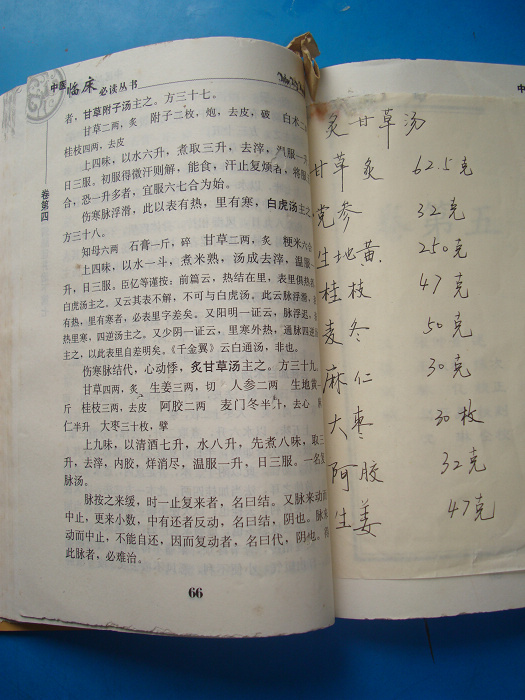 中医临床必读丛书
卷第四
者，甘草附子汤主之。方三十七。
甘草二两，炙 附子二枚，炮，去皮，破 白术二
桂枝四两，去皮
上四味，以水六升，煮取三升，去滓，温服一升
日三服。初服得微汗则解，能食，汗止复烦者，将服
合，恐一升多者，宜服六七合为始。
伤寒脉浮滑，此以表有热，里有寒，白虎汤主之
方三十八。
知母六两 石膏一斤，碎 甘草二两，炙 粳米六合
上四味，以水一斗，煮米熟，汤成去滓，温服一
升，日三服。臣亿等谨按：前篇云，热结在里，表里俱热者
白虎汤主之，又云其表不解，不可与白虎汤，此云脉浮滑，表
有热，里有寒者，必表里字差矣。又阳明一证云，脉浮迟，表
热里寒，四逆汤主之。又少阴一证云，里寒外热，通脉四逆汤
主之，以此表里自差明矣。《千金翼》云白通汤，非也。
伤寒脉结代，心动悸，炙甘草汤主之。方三十九
甘草四两，炙 生姜三两，切 人参二两 生地黄一
斤 桂枝三两，去皮 阿胶二两 麦门冬半升，去心 麻
仁半升 大枣三十枚，擘
上九味，以清酒七升，水八升，先煮八味，取三
升，去滓，内胶，烊消尽，温服一升，日三服。一名复
脉汤。
脉按之来缓，时一止复来者，名曰结。又脉来动而
中止，更来小数，中有还者反动，名曰结，阴也。脉来
动而中止，不能自还，因而复动者，名曰代，阴也。得
此脉者，必难治。
66
炙甘草汤
甘草炙 62.5克
党参 32克
生地黄 250克
桂枝 47克
麦冬 50克
麻仁 30克
大枣 30枚
阿胶 32克
生姜 47克
中